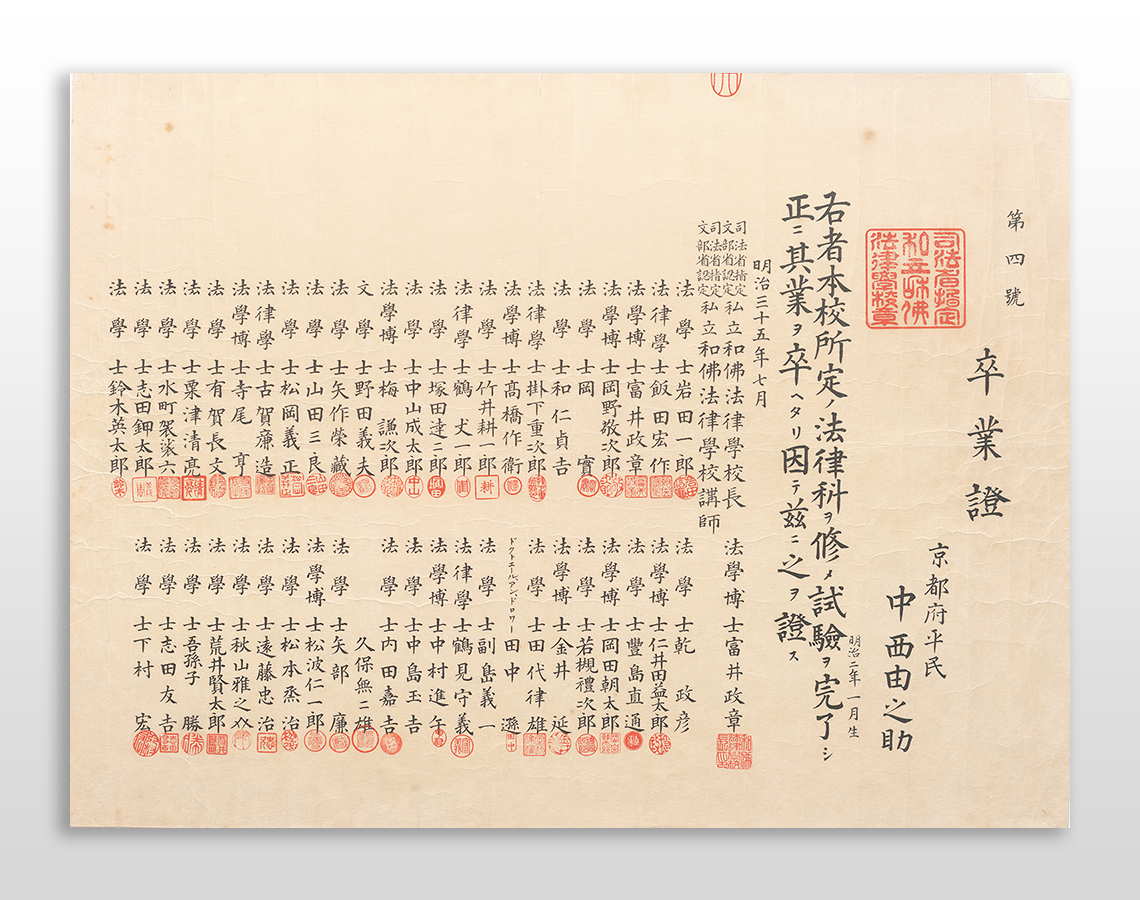 第四號
卒業證
京都府平民
中西由之助
明治二年一月生
司法省指定
私立和佛
法律學校章
右者本校所定ノ法律科ヲ修メ試驗ヲ完了シ
正ニ其業ヲ卒ヘタリ因テ茲ニ之ヲ證ス
明治三十五年七月
司法省指定
文部省認定
私立和佛法律學校長 法學博士富井政章
司法省指定
文部省認定
私立和佛法律學校講師
法學士岩田一郎
法律學士飯田宏作
法學博士富井政章
法學博士岡野敬次郎
法學士岡實
法學士和仁貞吉
法律學士掛下重次郎
法學博士高橋作衛
法學士竹井耕一郎
法律學士鶴丈一郎
法學士塚田達二郎
法學士中山成太郎
法學博士梅謙次郎
文學士野田義夫
法學士矢作榮藏
法學士山田三良
法學士松岡義正
法律學士古賀廉造
法學博士寺尾亨
法學士有賀長文
法學士粟津清亮
法學士水町袈裟六
法學士志田鉀太郎
法學士鈴木英太郎
法學士乾政彦
法學博士仁井田益太郎
法學士豐島直通
法學博士岡田朝太郎
法學士若槻禮次郎
法學博士金井延
法學士田代律雄
ドクトエールアンドロワー田中遜
法學士副島義一
法律學士鶴見守義
法學博士中村進午
法學士中島玉吉
法學士内田嘉吉
久保無二雄
法學士矢部廉
法學博士松波仁一郎
法學士松本烝治
法學士遠藤忠治
法學士秋山雅之介
法學士荒井賢太郎
法學士吾孫子勝
法學士志田友吉
法學士下村宏